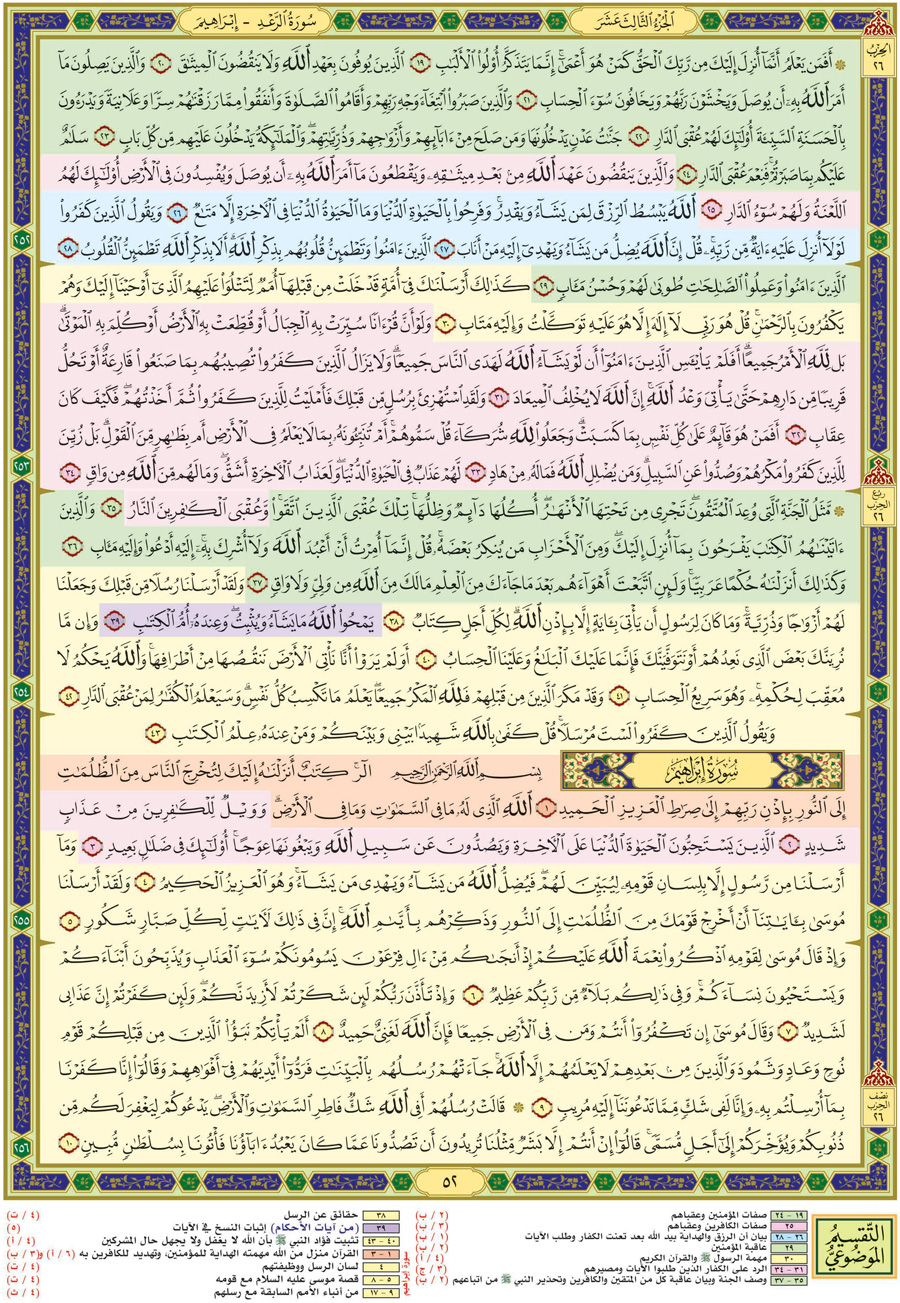 الجزء الثالث عشر
سورة الرعد - إبراهيم
الحزب
٢٦
۞ أَفَمَن يَعْلَمُ أَنَّمَآ أُنزِلَ إِلَيْكَ مِن رَّبِّكَ ٱلْحَقُّ كَمَنْ هُوَ أَعْمَىٰٓۚ إِنَّمَا يَتَذَكَّرُ أُو۟لُوا۟ ٱلْأَلْبَٰبِ ١٩ ٱلَّذِينَ يُوفُونَ بِعَهْدِ ٱللَّهِ وَلَا يَنقُضُونَ ٱلْمِيثَٰقَ ٢٠ وَٱلَّذِينَ يَصِلُونَ مَآ
أَمَرَ ٱللَّهُ بِهِۦٓ أَن يُوصَلَ وَيَخْشَوْنَ رَبَّهُمْ وَيَخَافُونَ سُوٓءَ ٱلْحِسَابِ ٢١ وَٱلَّذِينَ صَبَرُوا۟ ٱبْتِغَآءَ وَجْهِ رَبِّهِمْ وَأَقَامُوا۟ ٱلصَّلَوٰةَ وَأَنفَقُوا۟ مِمَّا رَزَقْنَٰهُمْ سِرًّا وَعَلَانِيَةً وَيَدْرَءُونَ
بِٱلْحَسَنَةِ ٱلسَّيِّئَةَ أُو۟لَٰٓئِكَ لَهُمْ عُقْبَى ٱلدَّارِ ٢٢ جَنَّٰتُ عَدْنٍ يَدْخُلُونَهَا وَمَن صَلَحَ مِنْ ءَابَآئِهِمْ وَأَزْوَٰجِهِمْ وَذُرِّيَّٰتِهِمْۖ وَٱلْمَلَٰٓئِكَةُ يَدْخُلُونَ عَلَيْهِم مِّن كُلِّ بَابٍ ٢٣ سَلَٰمٌ
عَلَيْكُم بِمَا صَبَرْتُمْۚ فَنِعْمَ عُقْبَى ٱلدَّارِ ٢٤ وَٱلَّذِينَ يَنقُضُونَ عَهْدَ ٱللَّهِ مِنۢ بَعْدِ مِيثَٰقِهِۦ وَيَقْطَعُونَ مَآ أَمَرَ ٱللَّهُ بِهِۦٓ أَن يُوصَلَ وَيُفْسِدُونَ فِى ٱلْأَرْضِۙ أُو۟لَٰٓئِكَ لَهُمُ
ٱللَّعْنَةُ وَلَهُمْ سُوٓءُ ٱلدَّارِ ٢٥ ٱللَّهُ يَبْسُطُ ٱلرِّزْقَ لِمَن يَشَآءُ وَيَقْدِرُۚ وَفَرِحُوا۟ بِٱلْحَيَوٰةِ ٱلدُّنْيَا وَمَا ٱلْحَيَوٰةُ ٱلدُّنْيَا فِى ٱلْءَاخِرَةِ إِلَّا مَتَٰعٌ ٢٦ وَيَقُولُ ٱلَّذِينَ كَفَرُوا۟
لَوْلَآ أُنزِلَ عَلَيْهِ ءَايَةٌ مِّن رَّبِّهِۦۗ قُلْ إِنَّ ٱللَّهَ يُضِلُّ مَن يَشَآءُ وَيَهْدِىٓ إِلَيْهِ مَنْ أَنَابَ ٢٧ ٱلَّذِينَ ءَامَنُوا۟ وَتَطْمَئِنُّ قُلُوبُهُم بِذِكْرِ ٱللَّهِۗ أَلَا بِذِكْرِ ٱللَّهِ تَطْمَئِنُّ ٱلْقُلُوبُ ٢٨
ٱلَّذِينَ ءَامَنُوا۟ وَعَمِلُوا۟ ٱلصَّٰلِحَٰتِ طُوبَىٰ لَهُمْ وَحُسْنُ مَـَٔابٍ ٢٩ كَذَٰلِكَ أَرْسَلْنَٰكَ فِىٓ أُمَّةٍ قَدْ خَلَتْ مِن قَبْلِهَآ أُمَمٌ لِّتَتْلُوَا۟ عَلَيْهِمُ ٱلَّذِىٓ أَوْحَيْنَآ إِلَيْكَ وَهُمْ
يَكْفُرُونَ بِٱلرَّحْمَٰنِۚ قُلْ هُوَ رَبِّى لَآ إِلَٰهَ إِلَّا هُوَ عَلَيْهِ تَوَكَّلْتُ وَإِلَيْهِ مَتَابِ ٣٠ وَلَوْ أَنَّ قُرْءَانًا سُيِّرَتْ بِهِ ٱلْجِبَالُ أَوْ قُطِّعَتْ بِهِ ٱلْأَرْضُ أَوْ كُلِّمَ بِهِ ٱلْمَوْتَىٰۗ
بَل لِّلَّهِ ٱلْأَمْرُ جَمِيعًاۗ أَفَلَمْ يَا۟يْـَٔسِ ٱلَّذِينَ ءَامَنُوٓا۟ أَن لَّوْ يَشَآءُ ٱللَّهُ لَهَدَى ٱلنَّاسَ جَمِيعًاۗ وَلَا يَزَالُ ٱلَّذِينَ كَفَرُوا۟ تُصِيبُهُم بِمَا صَنَعُوا۟ قَارِعَةٌ أَوْ تَحُلُّ
قَرِيبًا مِّن دَارِهِمْ حَتَّىٰ يَأْتِىَ وَعْدُ ٱللَّهِۚ إِنَّ ٱللَّهَ لَا يُخْلِفُ ٱلْمِيعَادَ ٣١ وَلَقَدِ ٱسْتُهْزِئَ بِرُسُلٍ مِّن قَبْلِكَ فَأَمْلَيْتُ لِلَّذِينَ كَفَرُوا۟ ثُمَّ أَخَذْتُهُمْۖ فَكَيْفَ كَانَ
عِقَابِ ٣٢ أَفَمَنْ هُوَ قَآئِمٌ عَلَىٰ كُلِّ نَفْسٍۭ بِمَا كَسَبَتْۗ وَجَعَلُوا۟ لِلَّهِ شُرَكَآءَ قُلْ سَمُّوهُمْۚ أَمْ تُنَبِّـُٔونَهُۥ بِمَا لَا يَعْلَمُ فِى ٱلْأَرْضِ أَم بِظَٰهِرٍ مِّنَ ٱلْقَوْلِۗ بَلْ زُيِّنَ
لِلَّذِينَ كَفَرُوا۟ مَكْرُهُمْ وَصُدُّوا۟ عَنِ ٱلسَّبِيلِۗ وَمَن يُضْلِلِ ٱللَّهُ فَمَا لَهُۥ مِنْ هَادٍ ٣٣ لَّهُمْ عَذَابٌ فِى ٱلْحَيَوٰةِ ٱلدُّنْيَاۖ وَلَعَذَابُ ٱلْءَاخِرَةِ أَشَقُّۖ وَمَا لَهُم مِّنَ ٱللَّهِ مِن وَاقٍ ٣٤
ربع
الحزب
٢٦
۞ مَّثَلُ ٱلْجَنَّةِ ٱلَّتِى وُعِدَ ٱلْمُتَّقُونَۖ تَجْرِى مِن تَحْتِهَا ٱلْأَنْهَٰرُۖ أُكُلُهَا دَآئِمٌ وَظِلُّهَاۚ تِلْكَ عُقْبَى ٱلَّذِينَ ٱتَّقَوا۟ۖ وَّعُقْبَى ٱلْكَٰفِرِينَ ٱلنَّارُ ٣٥ وَٱلَّذِينَ
ءَاتَيْنَٰهُمُ ٱلْكِتَٰبَ يَفْرَحُونَ بِمَآ أُنزِلَ إِلَيْكَۖ وَمِنَ ٱلْأَحْزَابِ مَن يُنكِرُ بَعْضَهُۥۚ قُلْ إِنَّمَآ أُمِرْتُ أَنْ أَعْبُدَ ٱللَّهَ وَلَآ أُشْرِكَ بِهِۦٓۚ إِلَيْهِ أَدْعُوا۟ وَإِلَيْهِ مَـَٔابِ ٣٦
وَكَذَٰلِكَ أَنزَلْنَٰهُ حُكْمًا عَرَبِيًّاۚ وَلَئِنِ ٱتَّبَعْتَ أَهْوَآءَهُم بَعْدَ مَا جَآءَكَ مِنَ ٱلْعِلْمِ مَا لَكَ مِنَ ٱللَّهِ مِن وَلِىٍّ وَلَا وَاقٍ ٣٧ وَلَقَدْ أَرْسَلْنَا رُسُلًا مِّن قَبْلِكَ وَجَعَلْنَا
لَهُمْ أَزْوَٰجًا وَذُرِّيَّةًۚ وَمَا كَانَ لِرَسُولٍ أَن يَأْتِىَ بِـَٔايَةٍ إِلَّا بِإِذْنِ ٱللَّهِۗ لِكُلِّ أَجَلٍ كِتَابٌ ٣٨ يَمْحُوا۟ ٱللَّهُ مَا يَشَآءُ وَيُثْبِتُۖ وَعِندَهُۥٓ أُمُّ ٱلْكِتَٰبِ ٣٩ وَإِن مَّا
نُرِيَنَّكَ بَعْضَ ٱلَّذِى نَعِدُهُمْ أَوْ نَتَوَفَّيَنَّكَ فَإِنَّمَا عَلَيْكَ ٱلْبَلَٰغُ وَعَلَيْنَا ٱلْحِسَابُ ٤٠ أَوَلَمْ يَرَوْا۟ أَنَّا نَأْتِى ٱلْأَرْضَ نَنقُصُهَا مِنْ أَطْرَافِهَاۚ وَٱللَّهُ يَحْكُمُ لَا
مُعَقِّبَ لِحُكْمِهِۦۚ وَهُوَ سَرِيعُ ٱلْحِسَابِ ٤١ وَقَدْ مَكَرَ ٱلَّذِينَ مِن قَبْلِهِمْ فَلِلَّهِ ٱلْمَكْرُ جَمِيعًاۖ يَعْلَمُ مَا تَكْسِبُ كُلُّ نَفْسٍۗ وَسَيَعْلَمُ ٱلْكُفَّٰرُ لِمَنْ عُقْبَى ٱلدَّارِ ٤٢
وَيَقُولُ ٱلَّذِينَ كَفَرُوا۟ لَسْتَ مُرْسَلًاۚ قُلْ كَفَىٰ بِٱللَّهِ شَهِيدًۢا بَيْنِى وَبَيْنَكُمْ وَمَنْ عِندَهُۥ عِلْمُ ٱلْكِتَٰبِ ٤٣
سورة إبراهيم
بِسْمِ ٱللَّهِ ٱلرَّحْمَٰنِ ٱلرَّحِيمِ الٓرۚ كِتَٰبٌ أَنزَلْنَٰهُ إِلَيْكَ لِتُخْرِجَ ٱلنَّاسَ مِنَ ٱلظُّلُمَٰتِ
إِلَى ٱلنُّورِ بِإِذْنِ رَبِّهِمْ إِلَىٰ صِرَٰطِ ٱلْعَزِيزِ ٱلْحَمِيدِ ١ ٱللَّهِ ٱلَّذِى لَهُۥ مَا فِى ٱلسَّمَٰوَٰتِ وَمَا فِى ٱلْأَرْضِۗ وَوَيْلٌ لِّلْكَٰفِرِينَ مِنْ عَذَابٍ
شَدِيدٍ ٢ ٱلَّذِينَ يَسْتَحِبُّونَ ٱلْحَيَوٰةَ ٱلدُّنْيَا عَلَى ٱلْءَاخِرَةِ وَيَصُدُّونَ عَن سَبِيلِ ٱللَّهِ وَيَبْغُونَهَا عِوَجًاۚ أُو۟لَٰٓئِكَ فِى ضَلَٰلٍۭ بَعِيدٍ ٣ وَمَآ
أَرْسَلْنَا مِن رَّسُولٍ إِلَّا بِلِسَانِ قَوْمِهِۦ لِيُبَيِّنَ لَهُمْۖ فَيُضِلُّ ٱللَّهُ مَن يَشَآءُ وَيَهْدِى مَن يَشَآءُۚ وَهُوَ ٱلْعَزِيزُ ٱلْحَكِيمُ ٤ وَلَقَدْ أَرْسَلْنَا
مُوسَىٰ بِـَٔايَٰتِنَآ أَنْ أَخْرِجْ قَوْمَكَ مِنَ ٱلظُّلُمَٰتِ إِلَى ٱلنُّورِ وَذَكِّرْهُم بِأَيَّىٰمِ ٱللَّهِۚ إِنَّ فِى ذَٰلِكَ لَءَايَٰتٍ لِّكُلِّ صَبَّارٍ شَكُورٍ ٥
وَإِذْ قَالَ مُوسَىٰ لِقَوْمِهِ ٱذْكُرُوا۟ نِعْمَةَ ٱللَّهِ عَلَيْكُمْ إِذْ أَنجَىٰكُم مِّنْ ءَالِ فِرْعَوْنَ يَسُومُونَكُمْ سُوٓءَ ٱلْعَذَابِ وَيُذَبِّحُونَ أَبْنَآءَكُمْ
وَيَسْتَحْيُونَ نِسَآءَكُمْۚ وَفِى ذَٰلِكُم بَلَآءٌ مِّن رَّبِّكُمْ عَظِيمٌ ٦ وَإِذْ تَأَذَّنَ رَبُّكُمْ لَئِن شَكَرْتُمْ لَأَزِيدَنَّكُمْۖ وَلَئِن كَفَرْتُمْ إِنَّ عَذَابِى
لَشَدِيدٌ ٧ وَقَالَ مُوسَىٰٓ إِن تَكْفُرُوٓا۟ أَنتُمْ وَمَن فِى ٱلْأَرْضِ جَمِيعًا فَإِنَّ ٱللَّهَ لَغَنِىٌّ حَمِيدٌ ٨ أَلَمْ يَأْتِكُمْ نَبَؤُا۟ ٱلَّذِينَ مِن قَبْلِكُمْ قَوْمِ
نُوحٍ وَعَادٍ وَثَمُودَۛ وَٱلَّذِينَ مِنۢ بَعْدِهِمْۛ لَا يَعْلَمُهُمْ إِلَّا ٱللَّهُۚ جَآءَتْهُمْ رُسُلُهُم بِٱلْبَيِّنَٰتِ فَرَدُّوٓا۟ أَيْدِيَهُمْ فِىٓ أَفْوَٰهِهِمْ وَقَالُوٓا۟ إِنَّا كَفَرْنَا
نصف
الحزب
٢٦
بِمَآ أُرْسِلْتُم بِهِۦ وَإِنَّا لَفِى شَكٍّ مِّمَّا تَدْعُونَنَآ إِلَيْهِ مُرِيبٍ ٩ ۞ قَالَتْ رُسُلُهُمْ أَفِى ٱللَّهِ شَكٌّ فَاطِرِ ٱلسَّمَٰوَٰتِ وَٱلْأَرْضِۖ يَدْعُوكُمْ لِيَغْفِرَ لَكُم مِّن
ذُنُوبِكُمْ وَيُؤَخِّرَكُمْ إِلَىٰٓ أَجَلٍ مُّسَمًّىۚ قَالُوٓا۟ إِنْ أَنتُمْ إِلَّا بَشَرٌ مِّثْلُنَا تُرِيدُونَ أَن تَصُدُّونَا عَمَّا كَانَ يَعْبُدُ ءَابَآؤُنَا فَأْتُونَا بِسُلْطَٰنٍ مُّبِينٍ ١٠
٢٥٢
٢٥٣
٢٥٤
٢٥٥
٢٥٦
٥٢
التقسيم
الموضوعي
١٩ - ٢٤ صفات المؤمنين وعقباهم (٢ / ب)
٢٥ صفات الكافرين وعقباهم (٣ / ب)
٢٦ - ٢٨ بيان أن الرزق والهداية بيد الله بعد تعنت الكفار وطلب الآيات (١ / ب)
٢٩ عاقبة المؤمنين (٢ / ب)
٣٠ مهمة الرسول ﷺ والقرآن الكريم (٤ / أ)
٣١ - ٣٤ الرد على الكفار الذين طلبوا الآيات ومصيرهم (٣ / ج)
٣٥ - ٣٧ وصف الجنة وبيان عاقبة كل من المتقين والكافرين وتحذير النبي ﷺ من اتباعهم (٢ / ب)
٣٨ حقائق عن الرسل (٤ / ت)
٣٩ (من آيات الأحكام) إثبات النسخ في الآيات (٥)
٤٠ - ٤٣ تثبيت فؤاد النبي ﷺ بأن الله لا يغفل ولا يجهل حال المشركين (٤ / أ)
سورة إبراهيم
١ - ٣ القرآن منزل من الله مهمته الهداية للمؤمنين، وتهديد للكافرين به (٦ / أ) و(٣ / ب)
٤ لسان الرسل ووظيفتهم (٤ / ت)
٥ - ٨ قصة موسى عليه السلام مع قومه (٤ / ت)
٩ - ١٧ من أنباء الأمم السابقة مع رسلهم (٤ / ت)